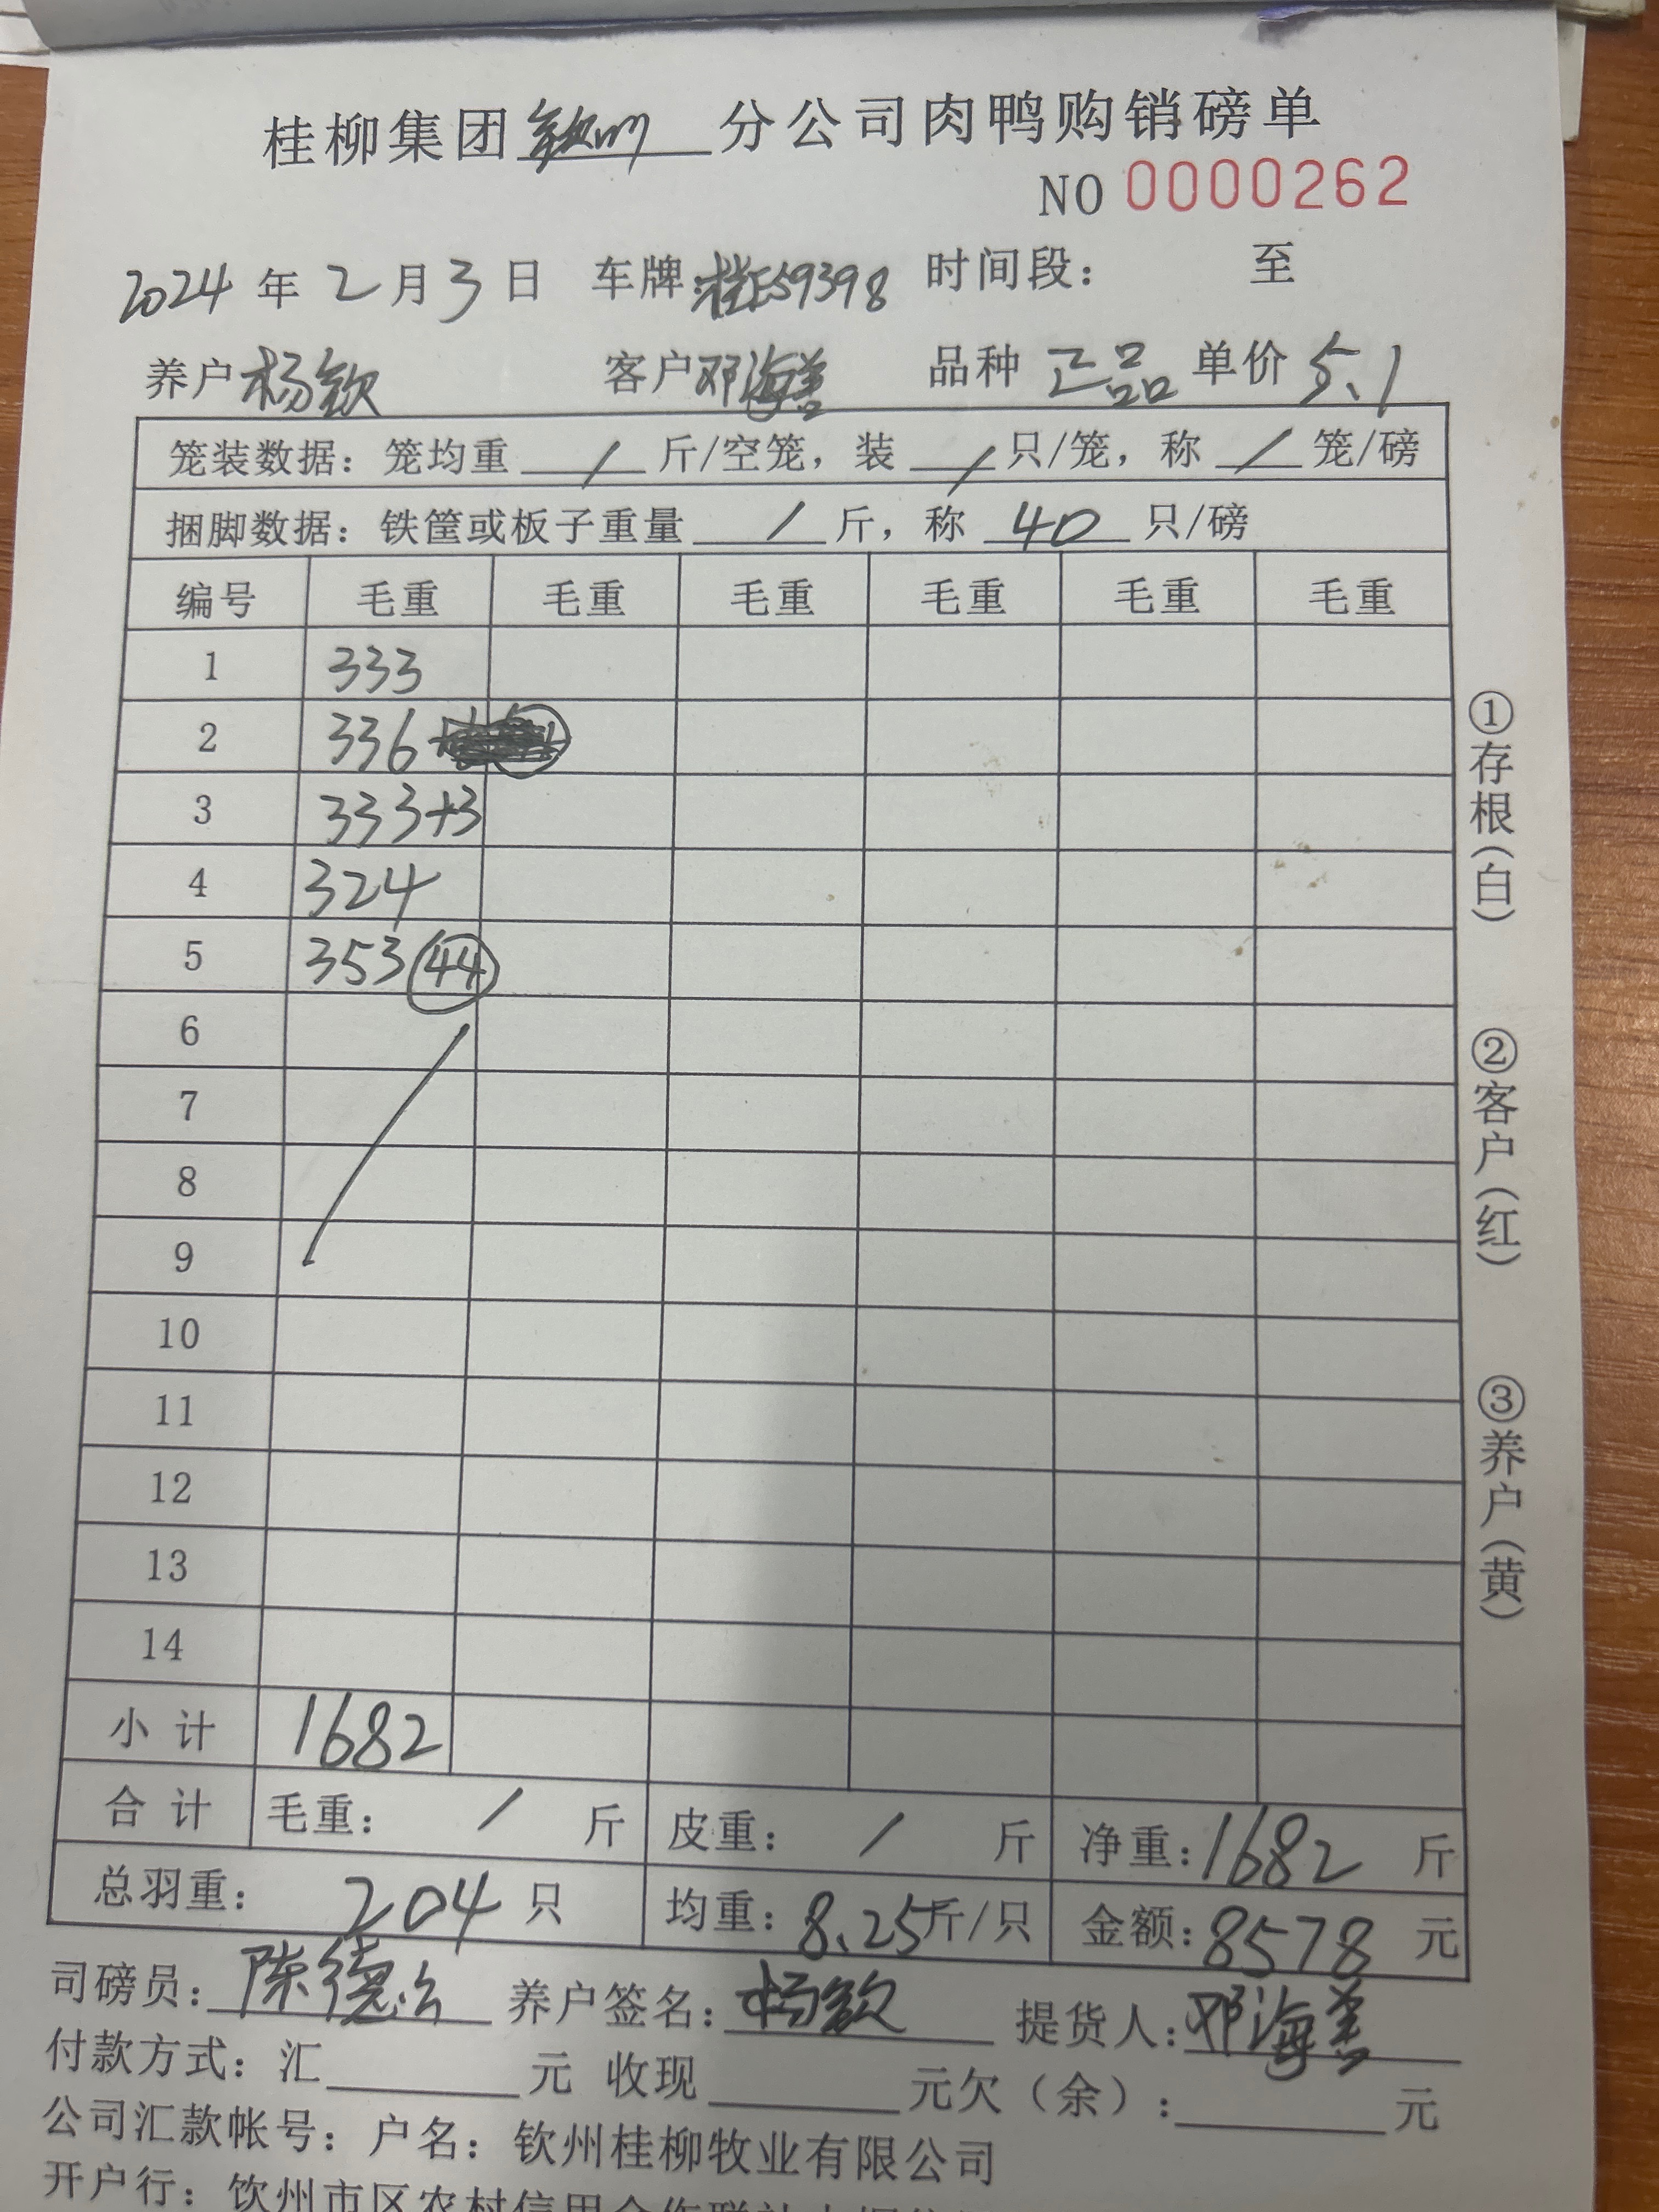 桂柳集团钦州分公司肉鸭购销磅单
NO 0000262
2024年2月3日 车牌:桂E59398 时间段: 至
养户杨钦 客户邓海善 品种 正品 单价 5.1
笼装数据：笼均重 / 斤/空笼，装 / 只/笼，称 / 笼/磅
捆脚数据：铁筐或板子重量 / 斤，称 40 只/磅
编号 毛重 毛重 毛重 毛重 毛重 毛重
1 333
2 336
3 333+3
4 324
5 353 44
6
7
8
9
10
11
12
13
14
小计 1682
合计 毛重： / 斤 皮重： / 斤 净重：1682 斤
总羽重： 204 只 均重：8.25斤/只 金额：8578 元
司磅员：陈德 养户签名：杨钦 提货人：邓海善
付款方式：汇 元 收现 元欠（余）： 元
公司汇款帐号：户名：钦州桂柳牧业有限公司
开户行：钦州市区农村信用合作联社
①存根（白）
②客户（红）
③养户（黄）